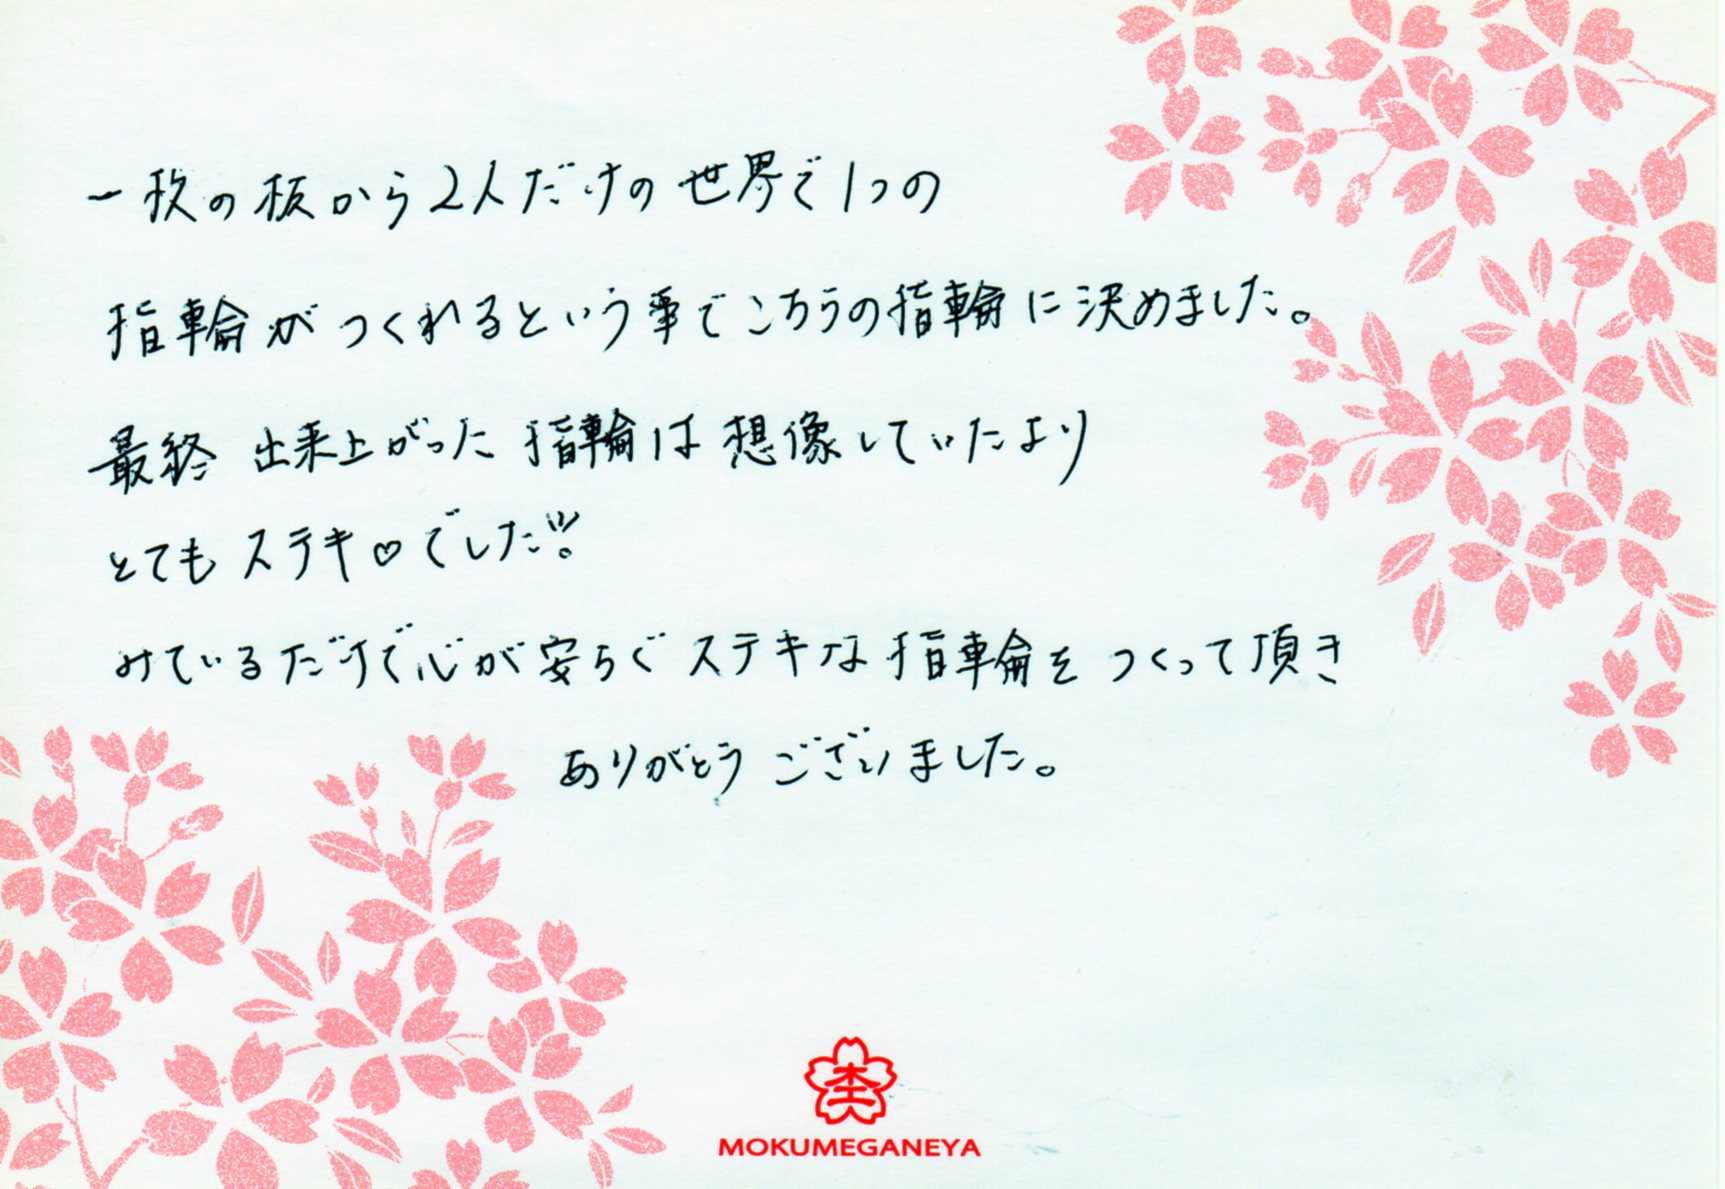 一枚の板から2人だけの世界で1つの
指輪がつくれるという事でこちらの指輪に決めました。
最終 出来上がった指輪は想像していたより
とてもステキ♡でした!!
みているだけで心が安らぐステキな指輪をつくって頂き
ありがとうございました。
MOKUMEGANEYA